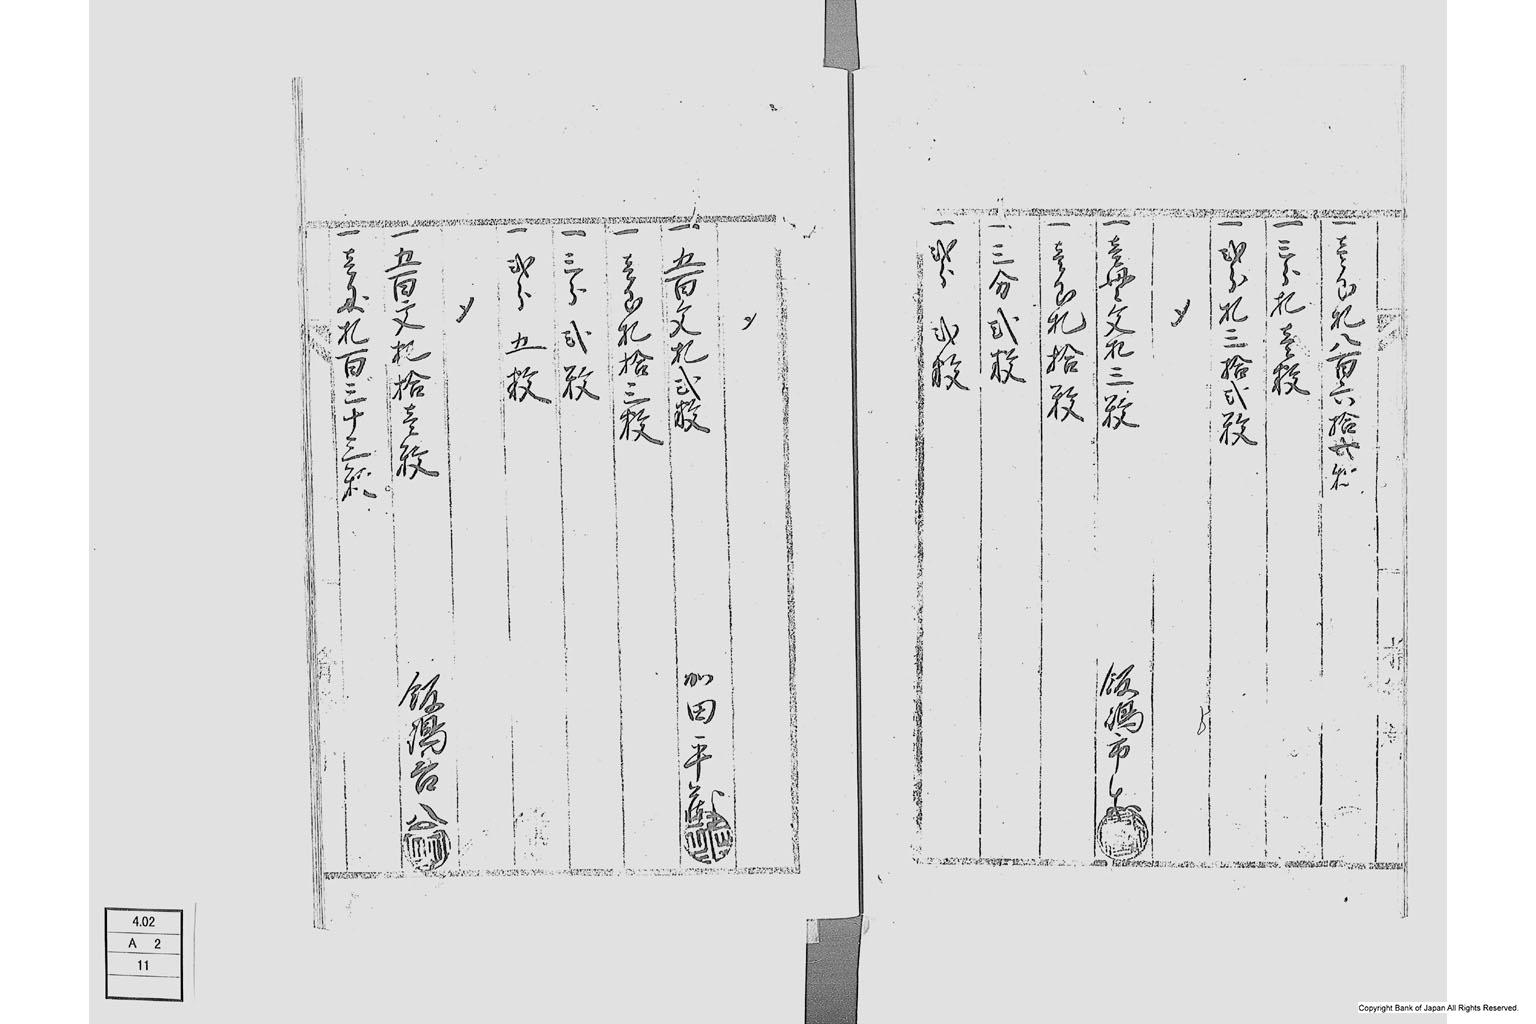 一壱匁札八百六拾廿枚
一三分札壱枚
一弐分札三拾弐枚
〆
一壱貫文札三枚 飯嶋市
一壱匁札拾枚
一三分弐枚
一弐分弐枚
〆
一五百文札弐枚 加田平蔵
一壱匁札拾三枚
一三分弐枚
一弐分五枚
〆
一五百文札拾壱枚 飯嶋吉八
一壱匁札百三十三枚
4.02
A 2
11
Copyright Bank of Japan All Rights Reserved.